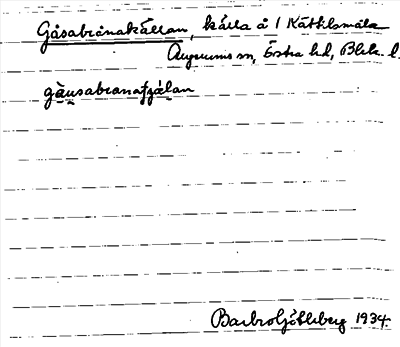 Gåsabrånakällan, källa å 1 Kättilsmåla
Augerums sn, Östra hd, Blek. l.
gäusabranaçälan
Barbro Götlsberg 1934.